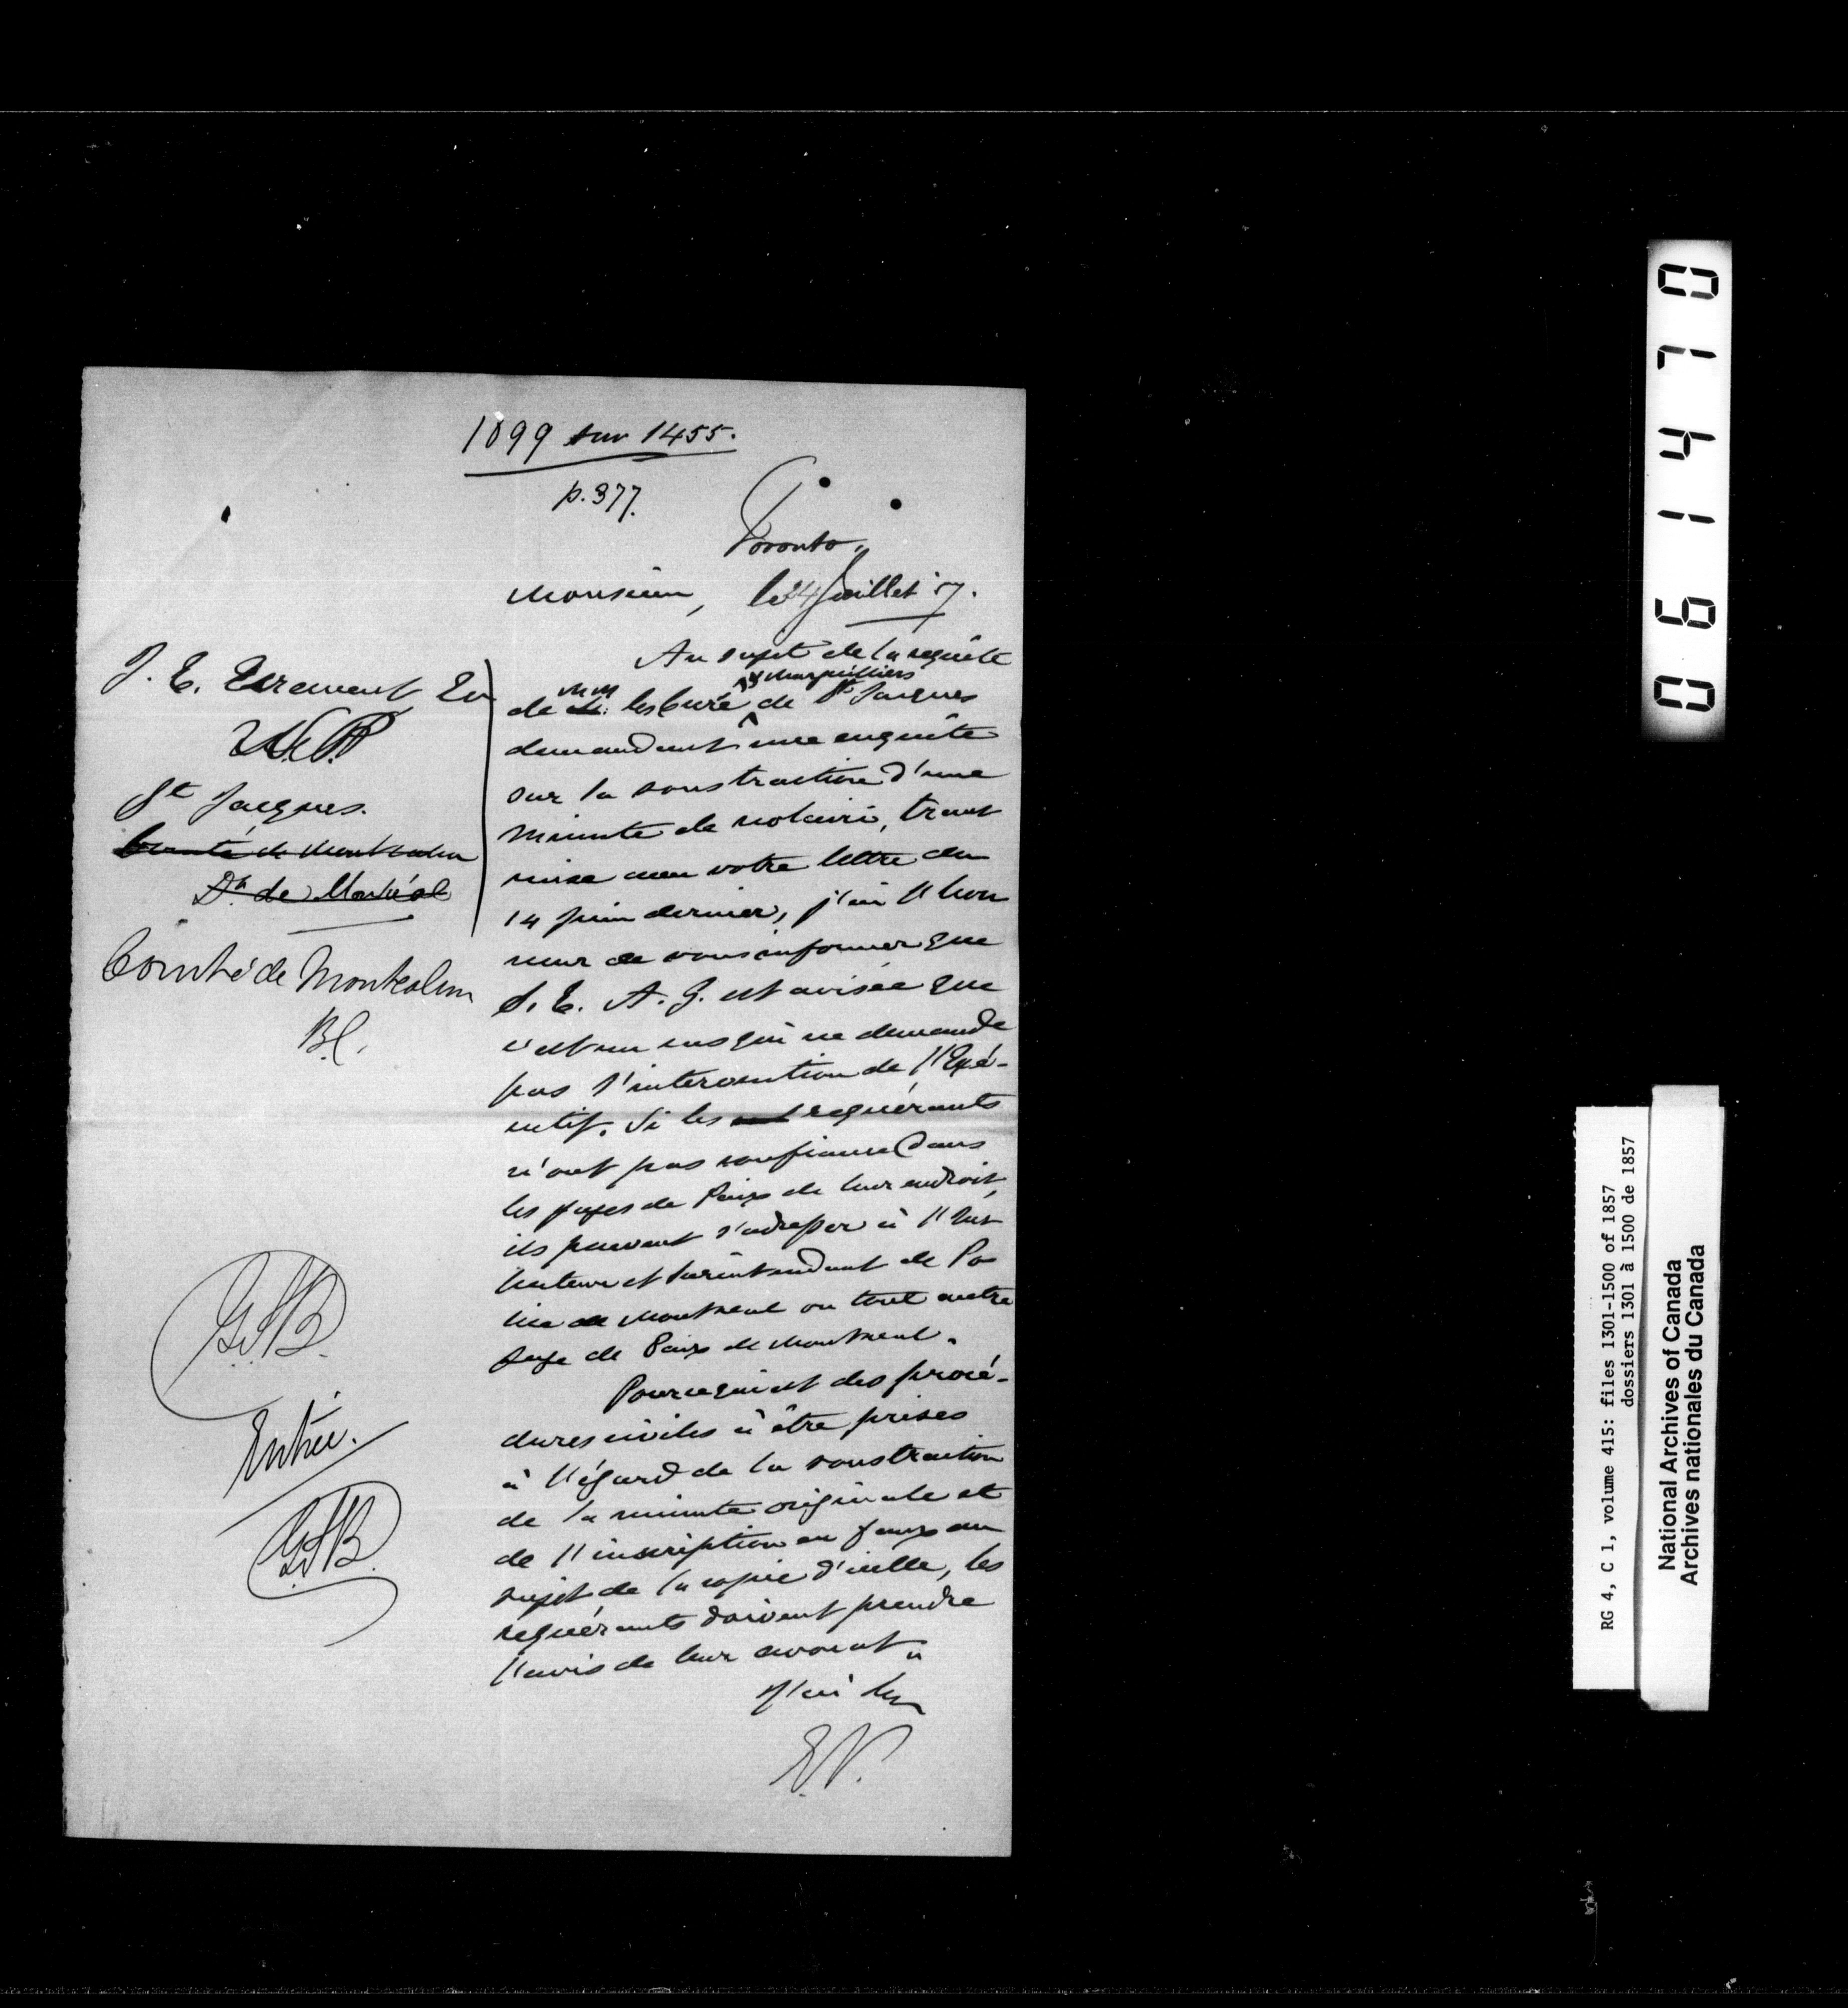 1899 sur 1455.
p. 377.
Toronto,
le 24 Juillet 57.
Monsieur,
J. E. Ecrement Er
N. P.
St Jacques.
Comté de Montcalm
Dt. de Montréal
Comté de Montcalm
B.C.
Au sujet de la requête
de MM. les Curé & Marguilliers de St. Jacques
demandant une enquête
sur la soustraction d'une
minute de notaire, trans
mise avec votre lettre du
14 juin dernier, j'ai l'hon
neur de vous informer que
S. E. A. G. est avisée que
c'est un cas qui ne demande
pas l'intervention de l'Exé-
cutif. Si les requérants
n'ont pas confiance dans
les juges de Paix de leur endroit,
ils peuvent s'adresser à l'Ins
pecteur et Surintendant de Po
lice de Montreal ou tout autre
juge de Paix de Montreal.
Pour ce qui est des procé-
dures civiles à être prises
à l'égard de la soustraction
de la minute originale et
de l'inscription en faux au
sujet de la copie d'icelle, les
requérants doivent prendre
l'avis de leur avocat.
J'ai l'hr
E.P.
Entrée.
0 6 1 4 7 0
RG 4, C 1, volume 415: files 1301-1500 of 1857
dossiers 1301 à 1500 de 1857
National Archives of Canada
Archives nationales du Canada